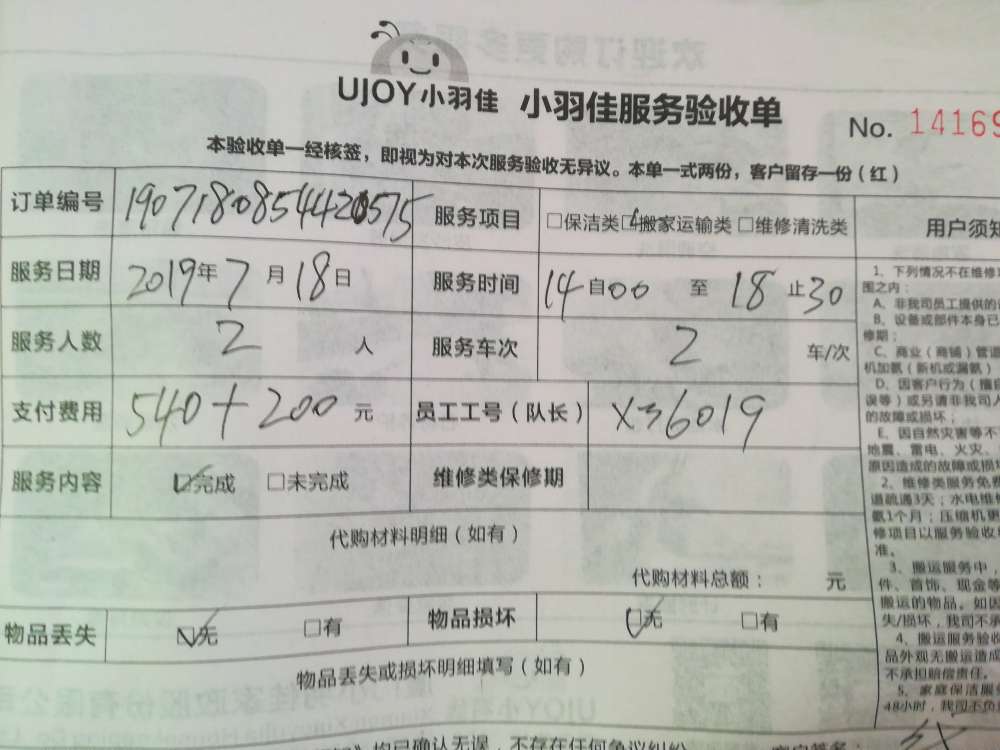 UJOY小羽佳 小羽佳服务验收单
No. 14169
本验收单一经核签，即视为对本次服务验收无异议。本单一式两份，客户留存一份（红）
订单编号 1907180854420575 服务项目 □保洁类 ☑搬家运输类 □维修清洗类
服务日期 2019年7月18日 服务时间 14自00 至 18止30
服务人数 2 人 服务车次 2 车/次
支付费用 540+200 元 员工工号（队长） X36019
服务内容 ☑完成 □未完成 维修类保修期
代购材料明细（如有）
代购材料总额： 元
物品丢失 ☑无 □有 物品损坏 ☑无 □有
物品丢失或损坏明细填写（如有）
均已确认无误，不存在任何争议纠纷
用户须知
1、下列情况不在维修
围之内：
A、非我司员工提供的
B、设备或部件本身已
修期；
C、商业（商铺）管道
机加氨（新机或漏氨）
D、因客户行为（擅
误等）或另请非我司人
的故障或损坏；
E、因自然灾害等不
地震、雷电、火灾、
原因造成的故障或损坏
2、维修类服务免费
道疏通3天；水电维修
氨1个月；压缩机更
修项目以服务验收
准。
3、搬运服务中，
件、首饰、现金等
搬运的物品。如因
失/损坏，我司不承
4、搬运服务验收
品外观无搬运造成
不承担赔偿责任。
5、家庭保洁服务
48小时，我司不负